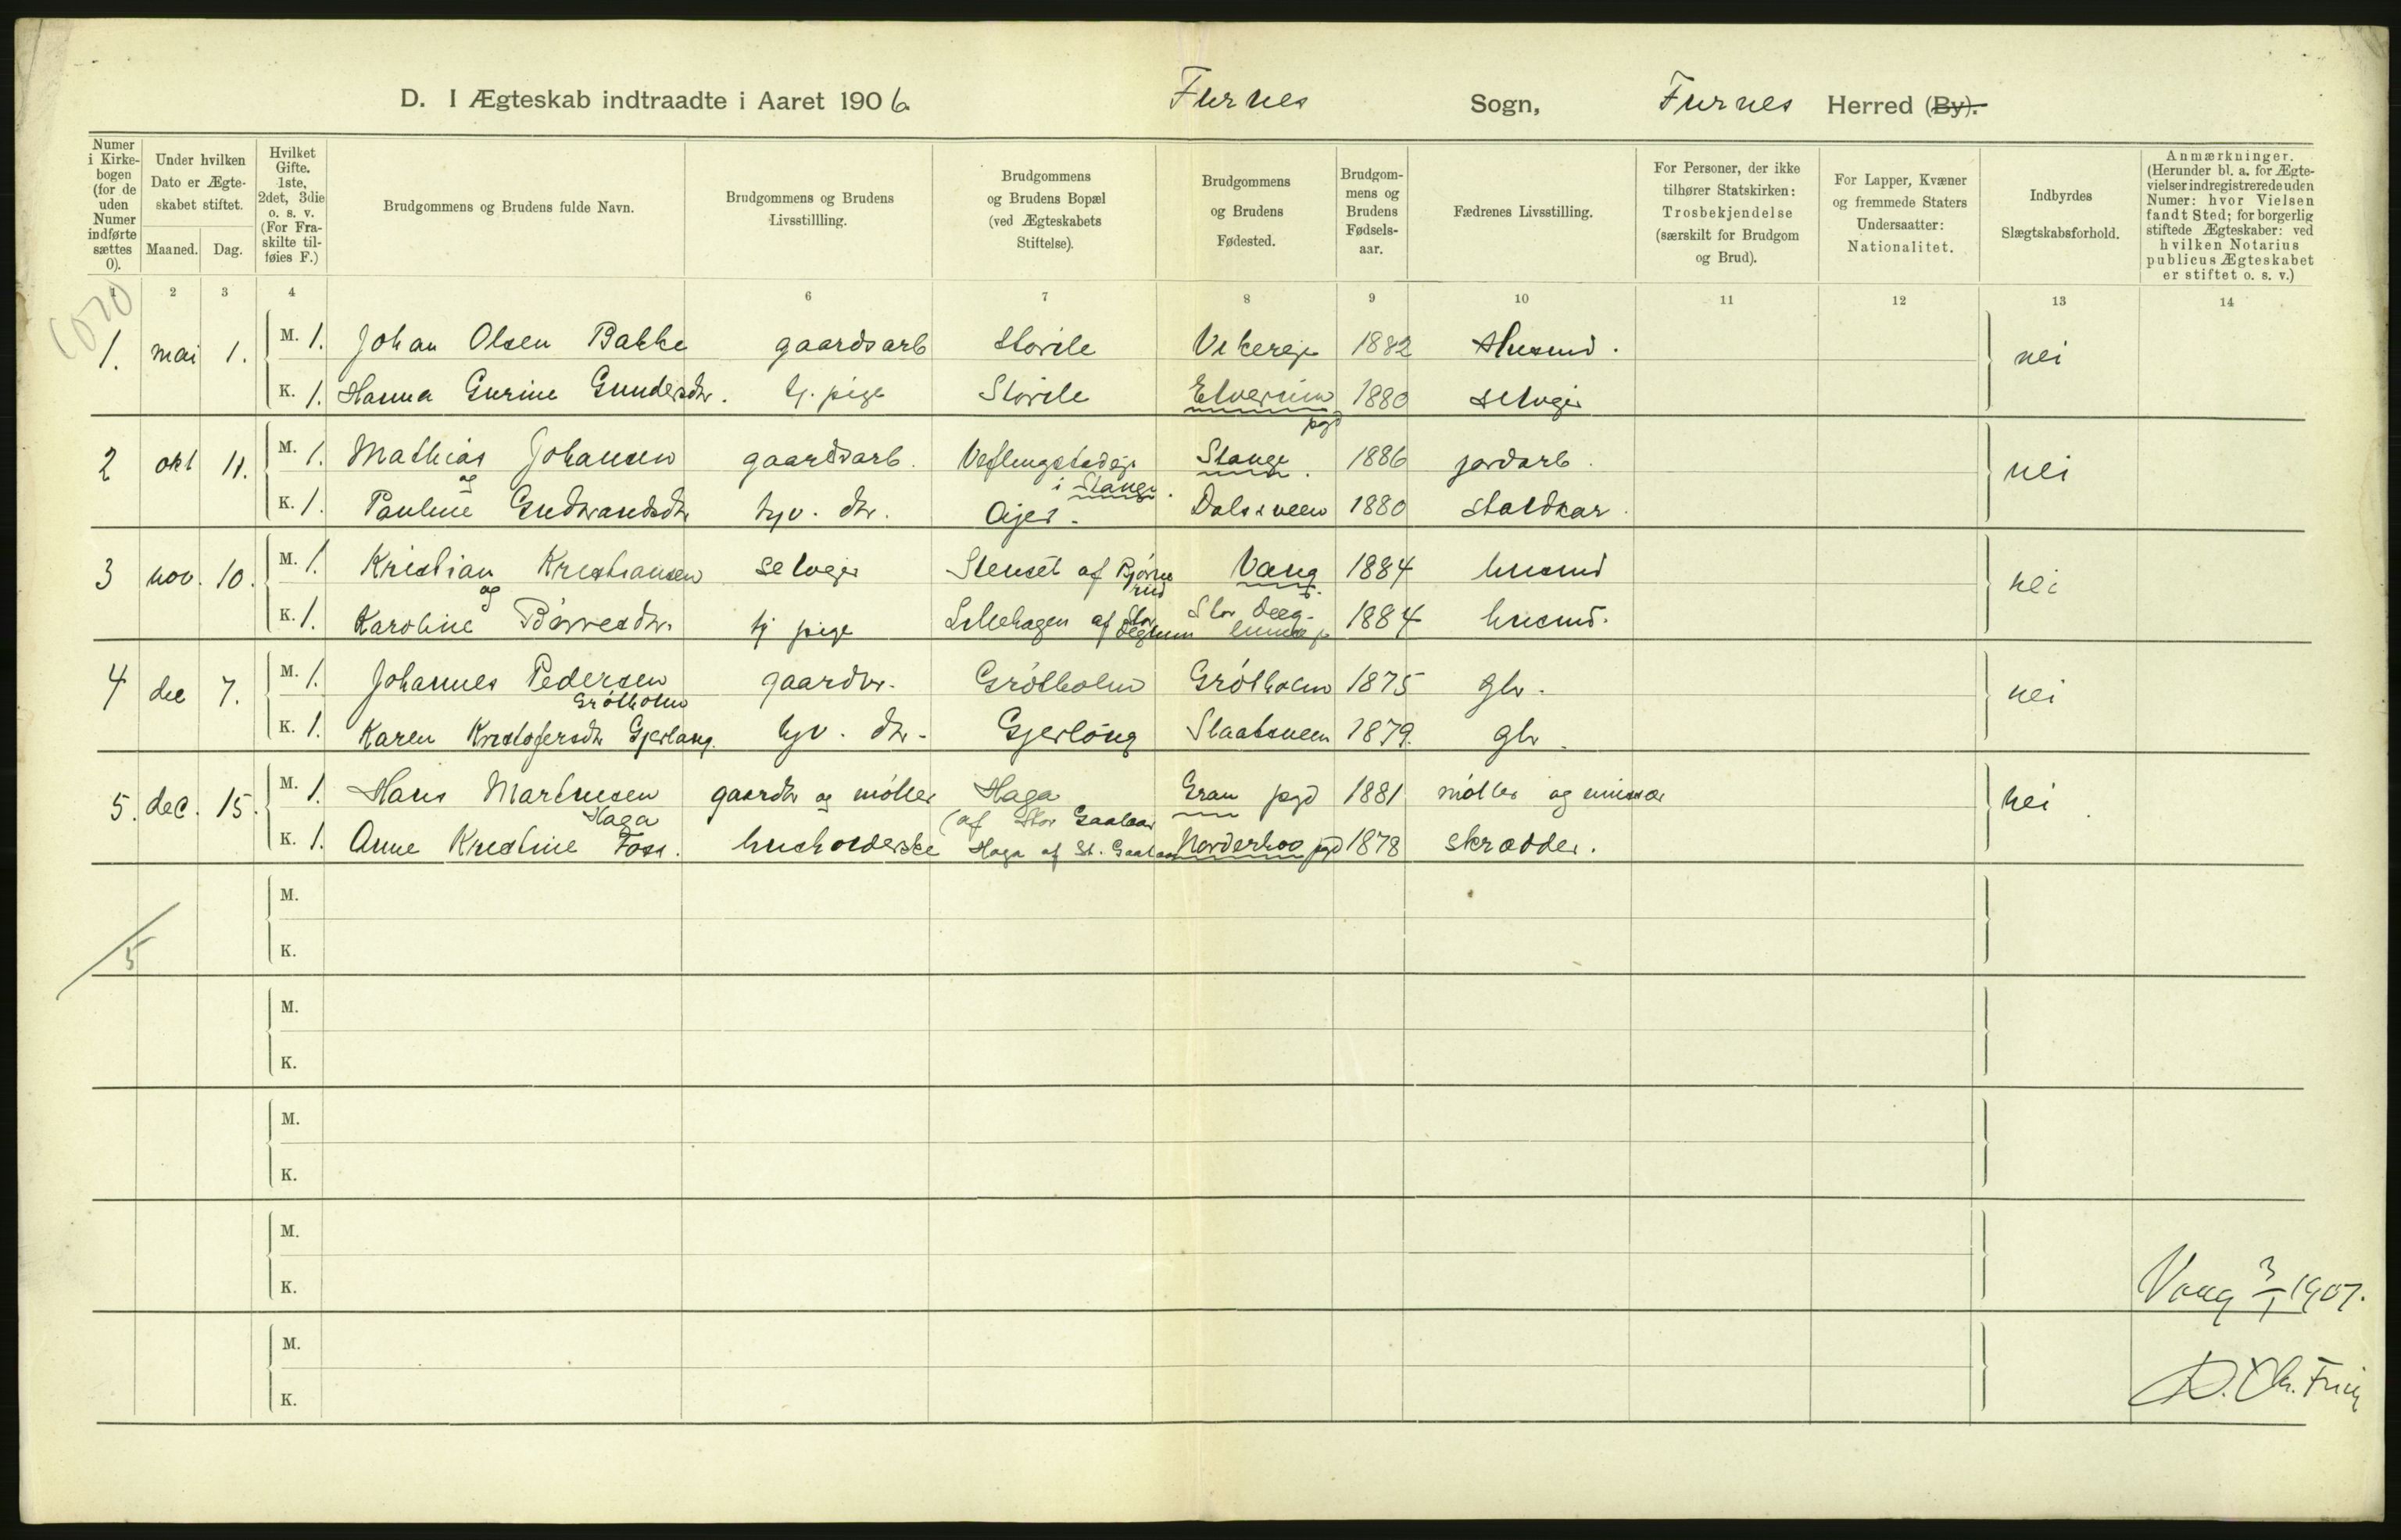 D. I Ægteskab indtraadte i Aaret 1906 Furnes Sogn, Furnes Herred (By).
Numer i Kirkebogen (for de uden Numer indførte sættes 0).
Under hvilken Dato er Ægteskabet stiftet.
Maaned. Dag.
Hvilket Gifte. 1ste, 2det, 3die o. s. v. (For Fraskilte tilføies F.)
Brudgommens og Brudens fulde Navn.
Brudgommens og Brudens Livsstillling.
Brudgommens og Brudens Bopæl (ved Ægteskabets Stiftelse).
Brudgommens og Brudens Fødested.
Brudgommens og Brudens Fødselsaar.
Fædrenes Livsstilling.
For Personer, der ikke tilhører Statskirken: Trosbekjendelse (særskilt for Brudgom og Brud).
For Lapper, Kvæner og fremmede Staters Undersaatter: Nationalitet.
Indbyrdes Slægtskabsforhold.
Anmærkninger. (Herunder bl. a. for Ægtevielser indregistrerede uden Numer: hvor Vielsen fandt Sted; for borgerlig stiftede Ægteskaber: ved hvilken Notarius publicus Ægteskabet er stiftet o. s. v.)
1 2 3 4 6 7 8 9 10 11 12 13 14
1. mai 1. M. 1. Johan Olsen Bakke gaardsarb 1882 Husmd. nei
K. 1. Hanna Gurine Gundersdtr. tj. pige Elverum pgd 1880 selveier
2 okt 11. M. 1. Mathias Johansen gaardsarb. i Stange. Stange. 1886 jordarb. nei
og
K. 1. Pauline Gudbrandsdtr hjv. dtr. Ajer. Dalsveen 1880 staldkar.
3 nov. 10. M. 1. Kristian Kristiansen selveier Stenset af Bjørnerud Vang 1884 husmd nei
og
K. 1. Karoline Børresdtr. tj pige Lillehagen af Stor Deglum 1884 husmd.
4 dec 7. M. 1. Johannes Pedersen Grötholm gaardbr. Grötholm Grötholm 1875 gbr. nei
K. 1. Karen Kristofersdtr Gjerlang. hjv. dtr. Gjerlöng Slaatsveen 1879. gbr.
5. dec. 15. M. 1. Hans Martinsen Haga gaardbr og möller Haga (af Stor Gaalaas Gran pgd 1881 möller og nei
K. 1. Anne Kristine Foss. husholderske Haga af St. Gaalaas Norderhov pgd 1878 skrædder.
M.
K.
5
M.
K.
M.
K.
M.
K.
Vang 3/1 1907.
M.
K.